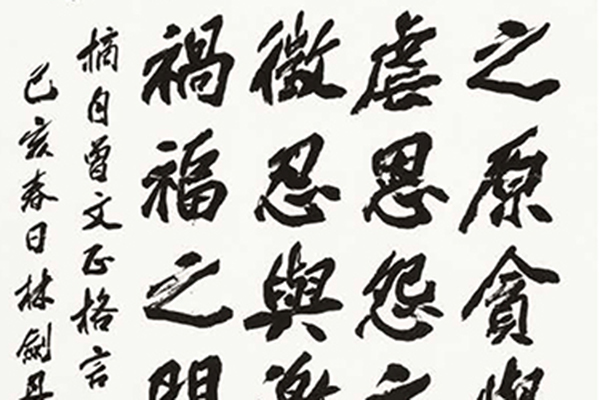 之原貪
虐恩怨之
徵忍與激
禍福之門
摘自曾文正格言
己亥春日林劍丹